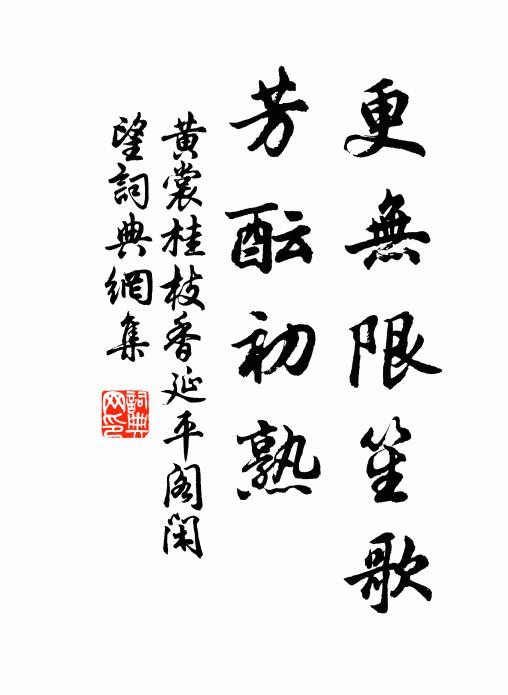 更無限笙歌
芳酝初熟
黄裳桂枝香延平阁闲
望詞典網集
詞典
网印